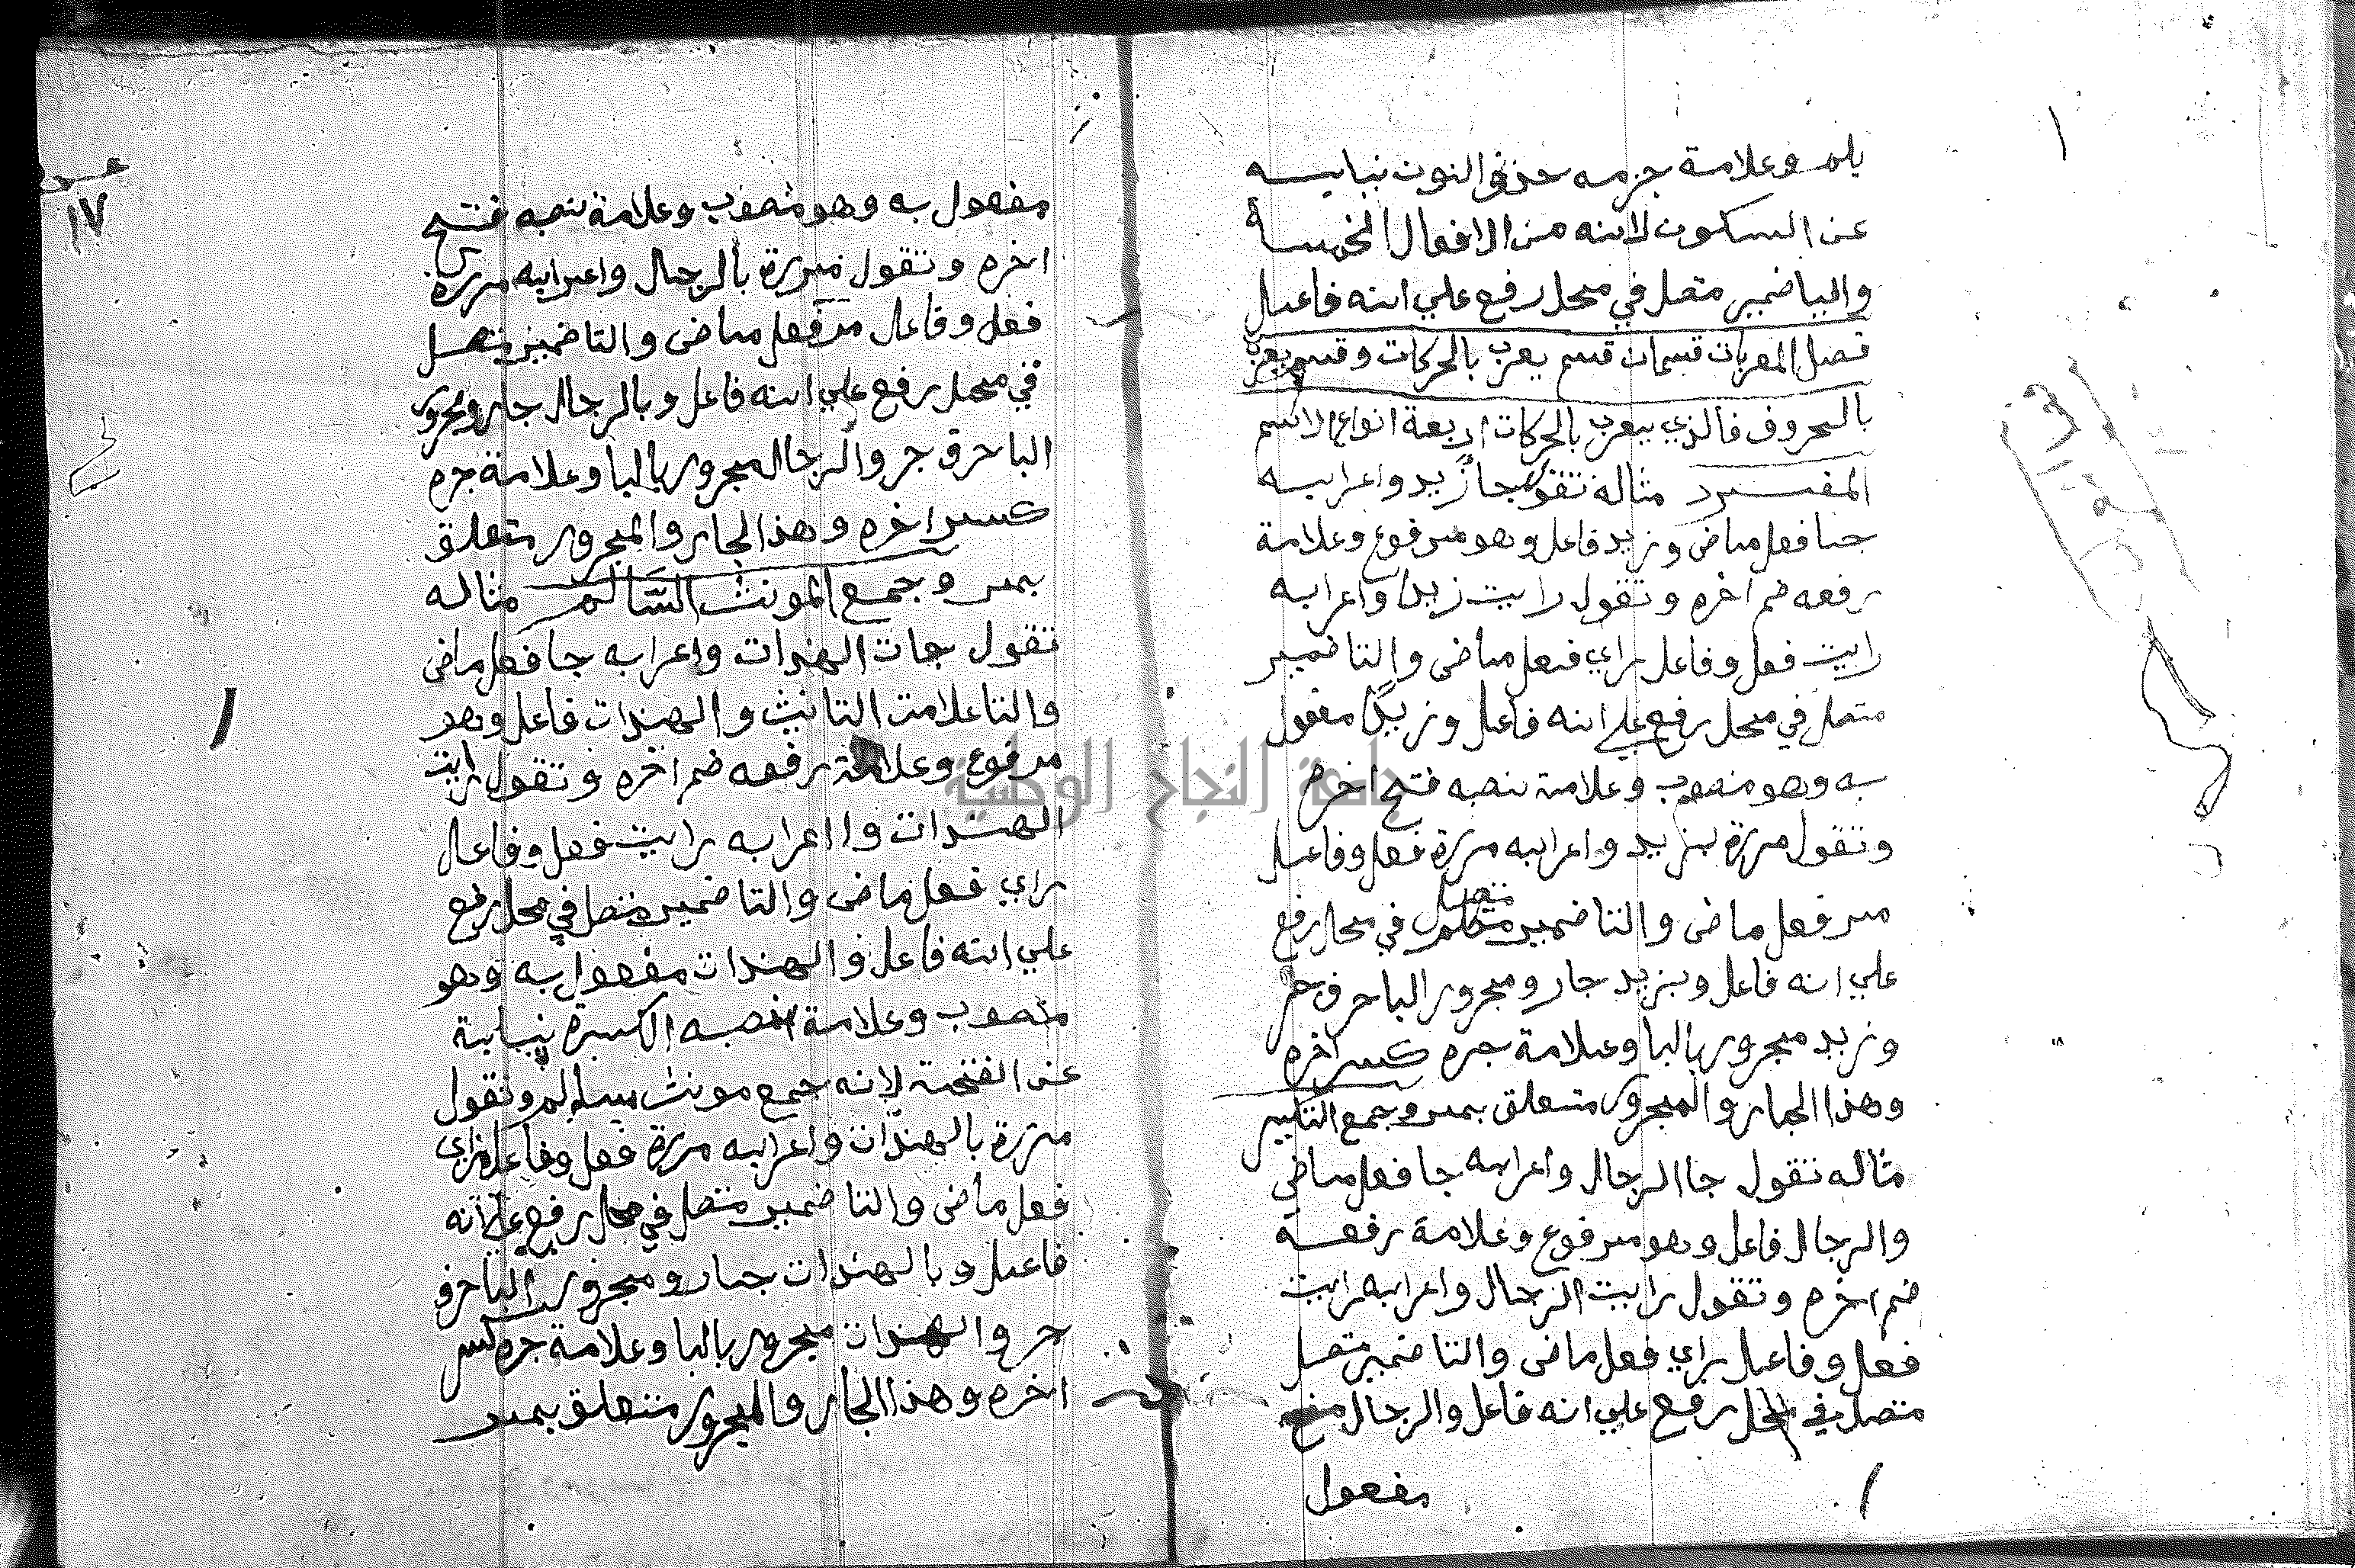 بلم وعلامة جزمه حذف النون نيابسه
عن السكون لانه من الافعال الخمسة
واليا ضمير متصل في محل رفع علي انه فاعل
فصل المعربات قسمان قسم يعرب بالحركات وقسم يعرب
بالحروف فالذي يعرب بالحركات اربعة انواع الاسم
المفرد مثاله تقول جا زيد واعرابه
جا فعل ماضي وزيد فاعل وهو مرفوع وعلامة
رفعه ضم اخره وتقول رايت زيدا واعرابه
رايت فعل وفاعل راي فعل ماضي والتا ضمير
متصل في محل رفع علي انه فاعل وزيدا مفعول
به وهو منصوب وعلامة نصبه فتح اخره
وتقول مررة بزيد واعرابه مررة فعل وفاعل
مر فعل ماضي والتا ضمير متصل في محل رفع
علي انه فاعل وبزيد جار ومجرور البا حرف جر
وزيد مجرور بالبا وعلامة جره كسر اخره
وهذا الجار والمجرور متعلق بمر وجمع التكسير
مثاله تقول جا الرجال واعرابه جا فعل ماضي
والرجال فاعل وهو مرفوع وعلامة رفعه
ضم اخره وتقول رايت الرجال واعرابه رايت
فعل وفاعل راي فعل ماضي والتا ضمير متصل
متصل في محل رفع علي انه فاعل والرجال
مفعول
١٧
مفعول به وهو منصوب وعلامة نصبه فتح
اخره وتقول مررة بالرجال واعرابه مررة
فعل وفاعل مر فعل ماضي والتا ضمير متصل
في محل رفع علي انه فاعل وبالرجال جار ومجرور
البا حرف جر والرجال مجرور بالبا وعلامة جره
كسر اخره وهذا الجار والمجرور متعلق
بمر وجمع المونث السالم مثاله
تقول جات الهندات واعرابه جا فعل ماضي
والتا علامت التانيث والهندات فاعل وهو
مرفوع وعلامة رفعه ضم اخره وتقول رايت
الهندات وااعرابه رايت فعل وفاعل
راي فعل ماضي والتا ضمير متصل في محل رفع
علي انه فاعل والهندات مفعول به وهو
منصوب وعلامة نصبه الكسرة نيابة
عن الفتحة لانه جمع مونث سالم وتقول
مررة بالهندات واعرابه مررة فعل وفاعل
فعل ماضي والتا ضمير متصل في محل رفع علي انه
فاعل وبالهندات جار ومجرور البا حرف
جر والهندات مجرور بالبا وعلامة جره كسر
اخره وهذا الجار والمجرور متعلق بمر
جامعة النجاح الوطنية